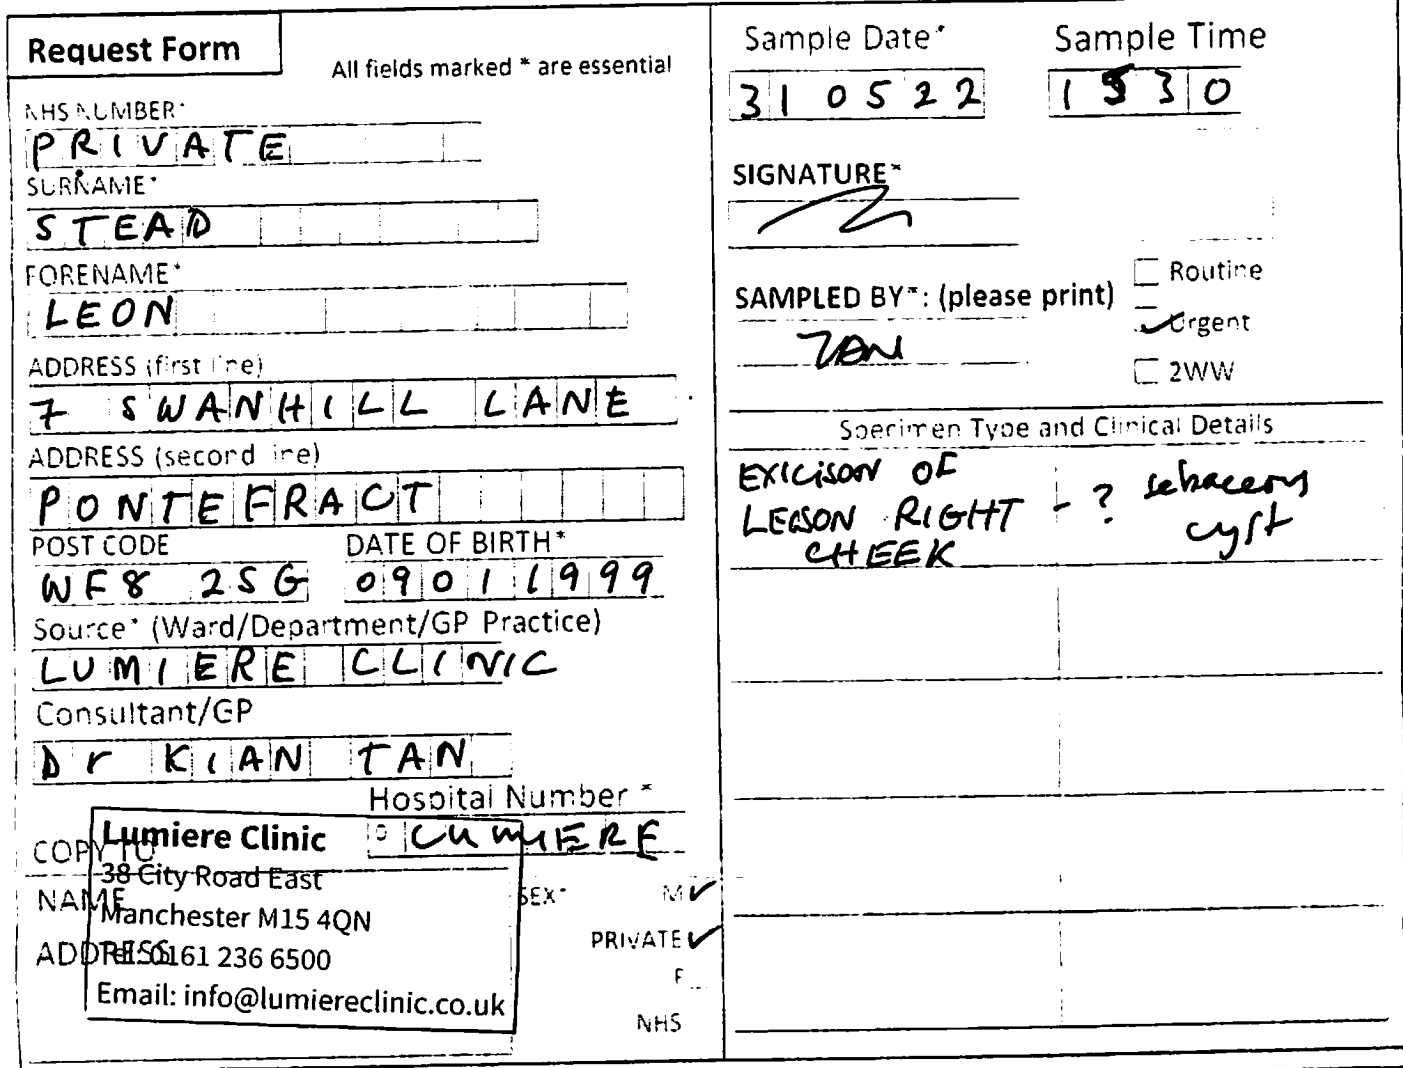 Request Form
All fields marked * are essential
NHS NUMBER*
PRIVATE
SURNAME*
STEAD
FORENAME*
LEON
ADDRESS (first line)
7 SWANHILL LANE
ADDRESS (second line)
PONTEFRACT
POST CODE DATE OF BIRTH*
WF8 2SG 09011999
Source* (Ward/Department/GP Practice)
LUMIERE CLINIC
Consultant/GP
Dr KIAN TAN
Hospital Number *
LUMIERE
COPY TO
NAME
ADDRESS
Lumiere Clinic
38 City Road East
Manchester M15 4QN
Tel: 0161 236 6500
Email: info@lumiereclinic.co.uk
SEX* M
PRIVATE
F
NHS
Sample Date* Sample Time
310522 1530
SIGNATURE*
SAMPLED BY*: (please print)
TAN
Routine
Urgent
2WW
Specimen Type and Clinical Details
EXICISON OF
LEASON RIGHT - ? sebaceous
CHEEK cyst